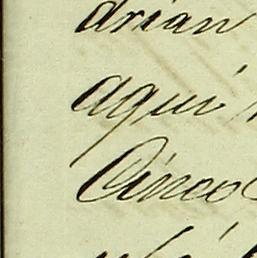 drian
aqui
Cinco